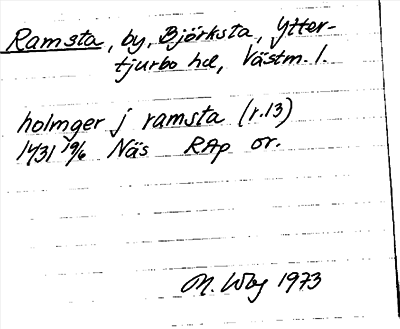 Ramsta, by, Björksta, Ytter-
tjurbo hd, Västm. l.
holmger j ramsta (r.13)
1431 19/6 Näs RAp or.
M. Wbg 1973